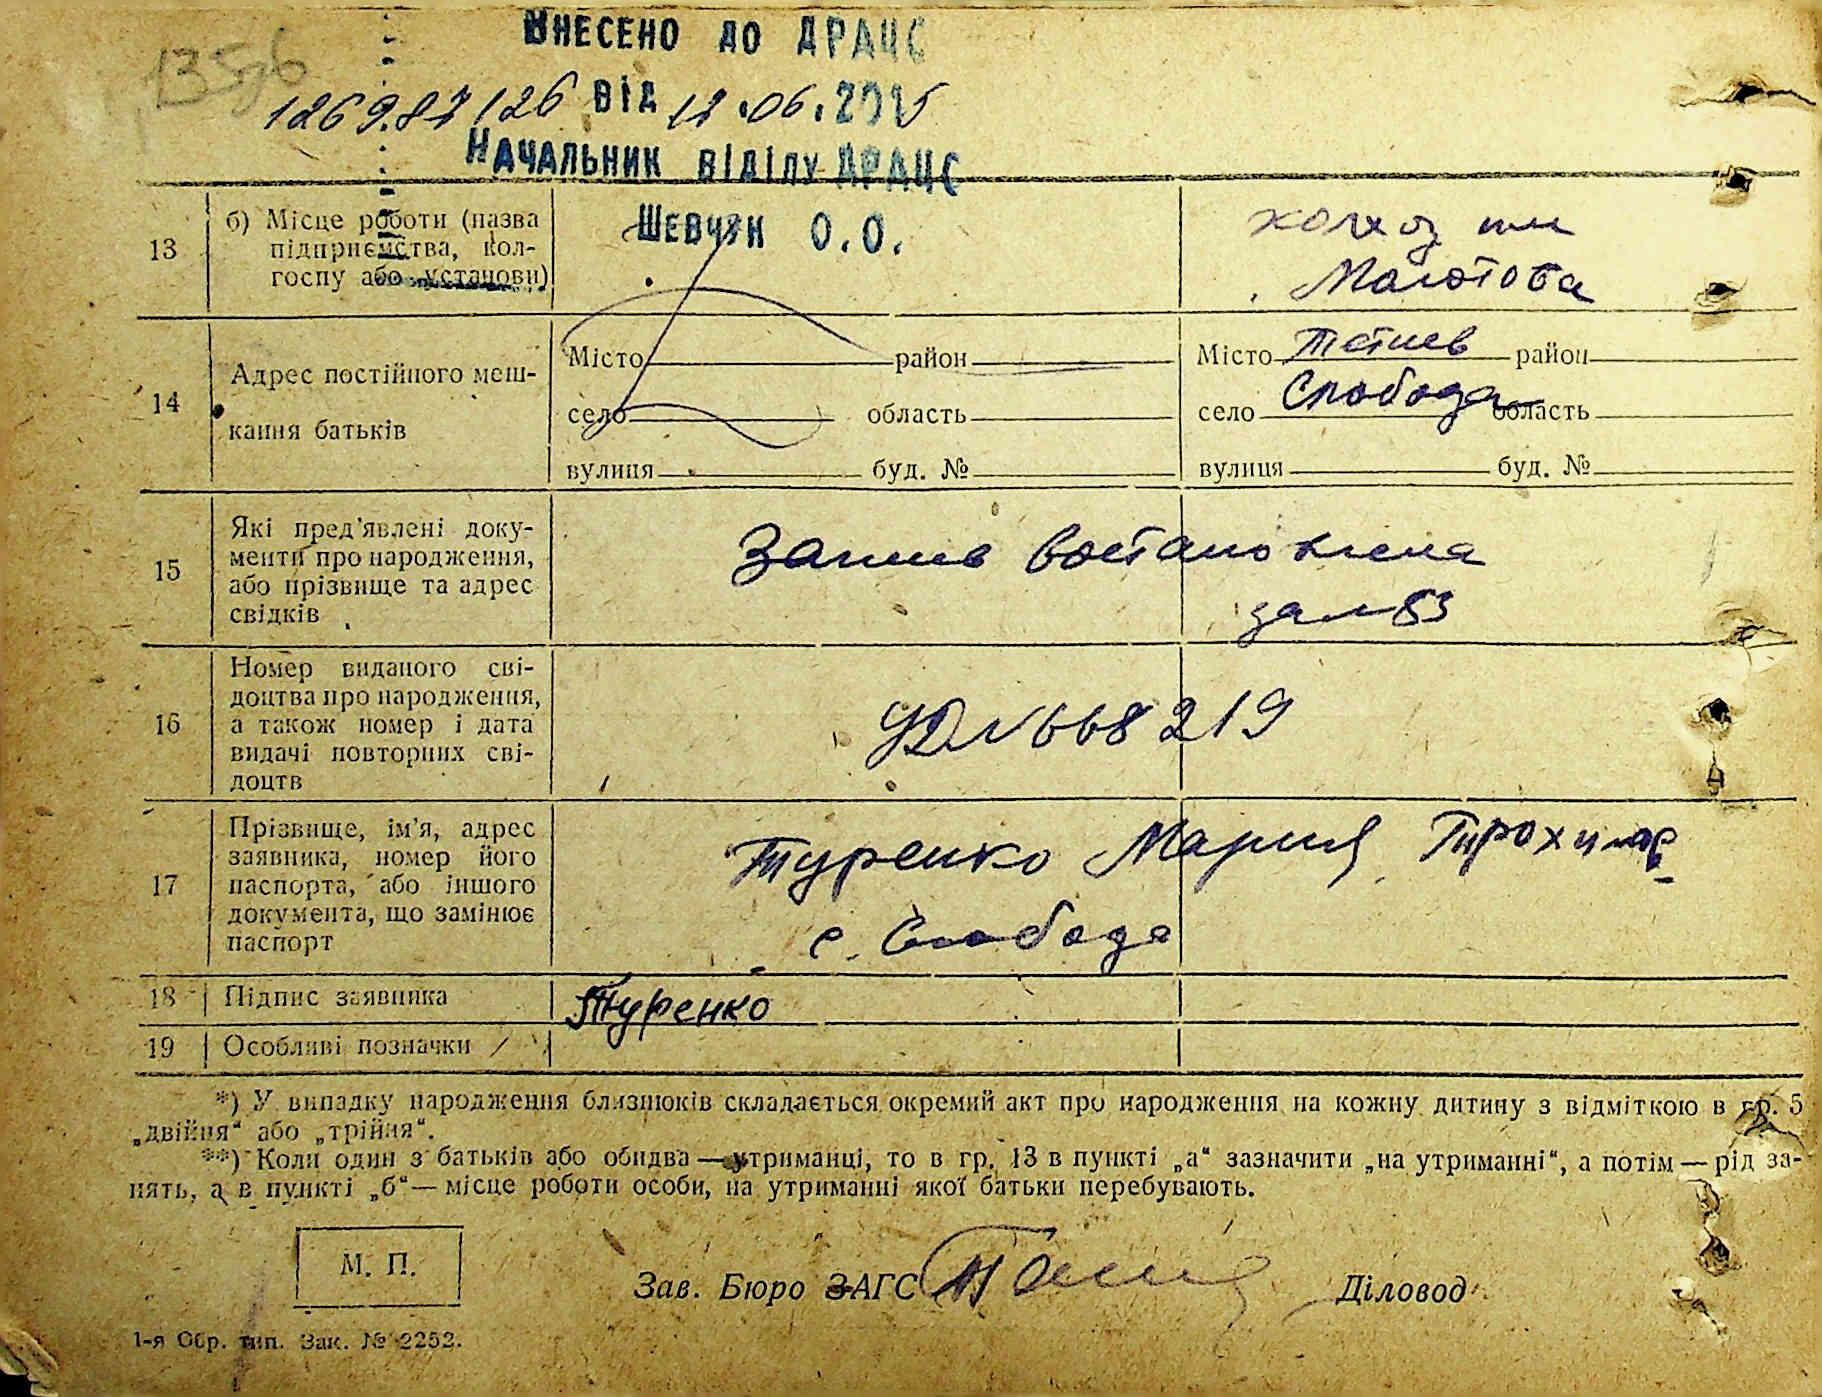 135
Внесено до ДРАЦС
126 від 12.06.2015
Начальник відділу ДРАЦС
Шевчук О.О.
13
б) Місце роботи (назва
підприємства, кол-
госпу або установи)
колхоз им
Молотова
14
Адрес постійного меш-
кання батьків
Місто район
село область
вулиця буд. №
Місто Тетиев район
село Слобода область
вулиця буд. №
15
Які пред'явлені доку-
менти про народження,
або прізвище та адрес
свідків
Запись востановлена
16
Номер виданого сві-
доцтва про народження,
а також номер і дата
видачі повторних сві-
доцтв
668219
17
Прізвище, ім'я, адрес
заявника, номер його
паспорта, або іншого
документа, що замінює
паспорт
Туренко Мария Трохимов
с. Слобода
18 Підпис заявника Туренко
19 Особливі позначки
*) У випадку народження близнюків складається окремий акт про народження на кожну дитину з відміткою в гр. 5
„двійня“ або „трійня“.
**) Коли один з батьків або обидва — утриманці, то в гр. 13 в пункті „а“ зазначити „на утриманні“, а потім — рід за-
нять, а в пункті „б“ — місце роботи особи, на утриманні якої батьки перебувають.
М. П.
Зав. Бюро ЗАГС Діловод
1-я Обр. тип. Зак. № 2252.